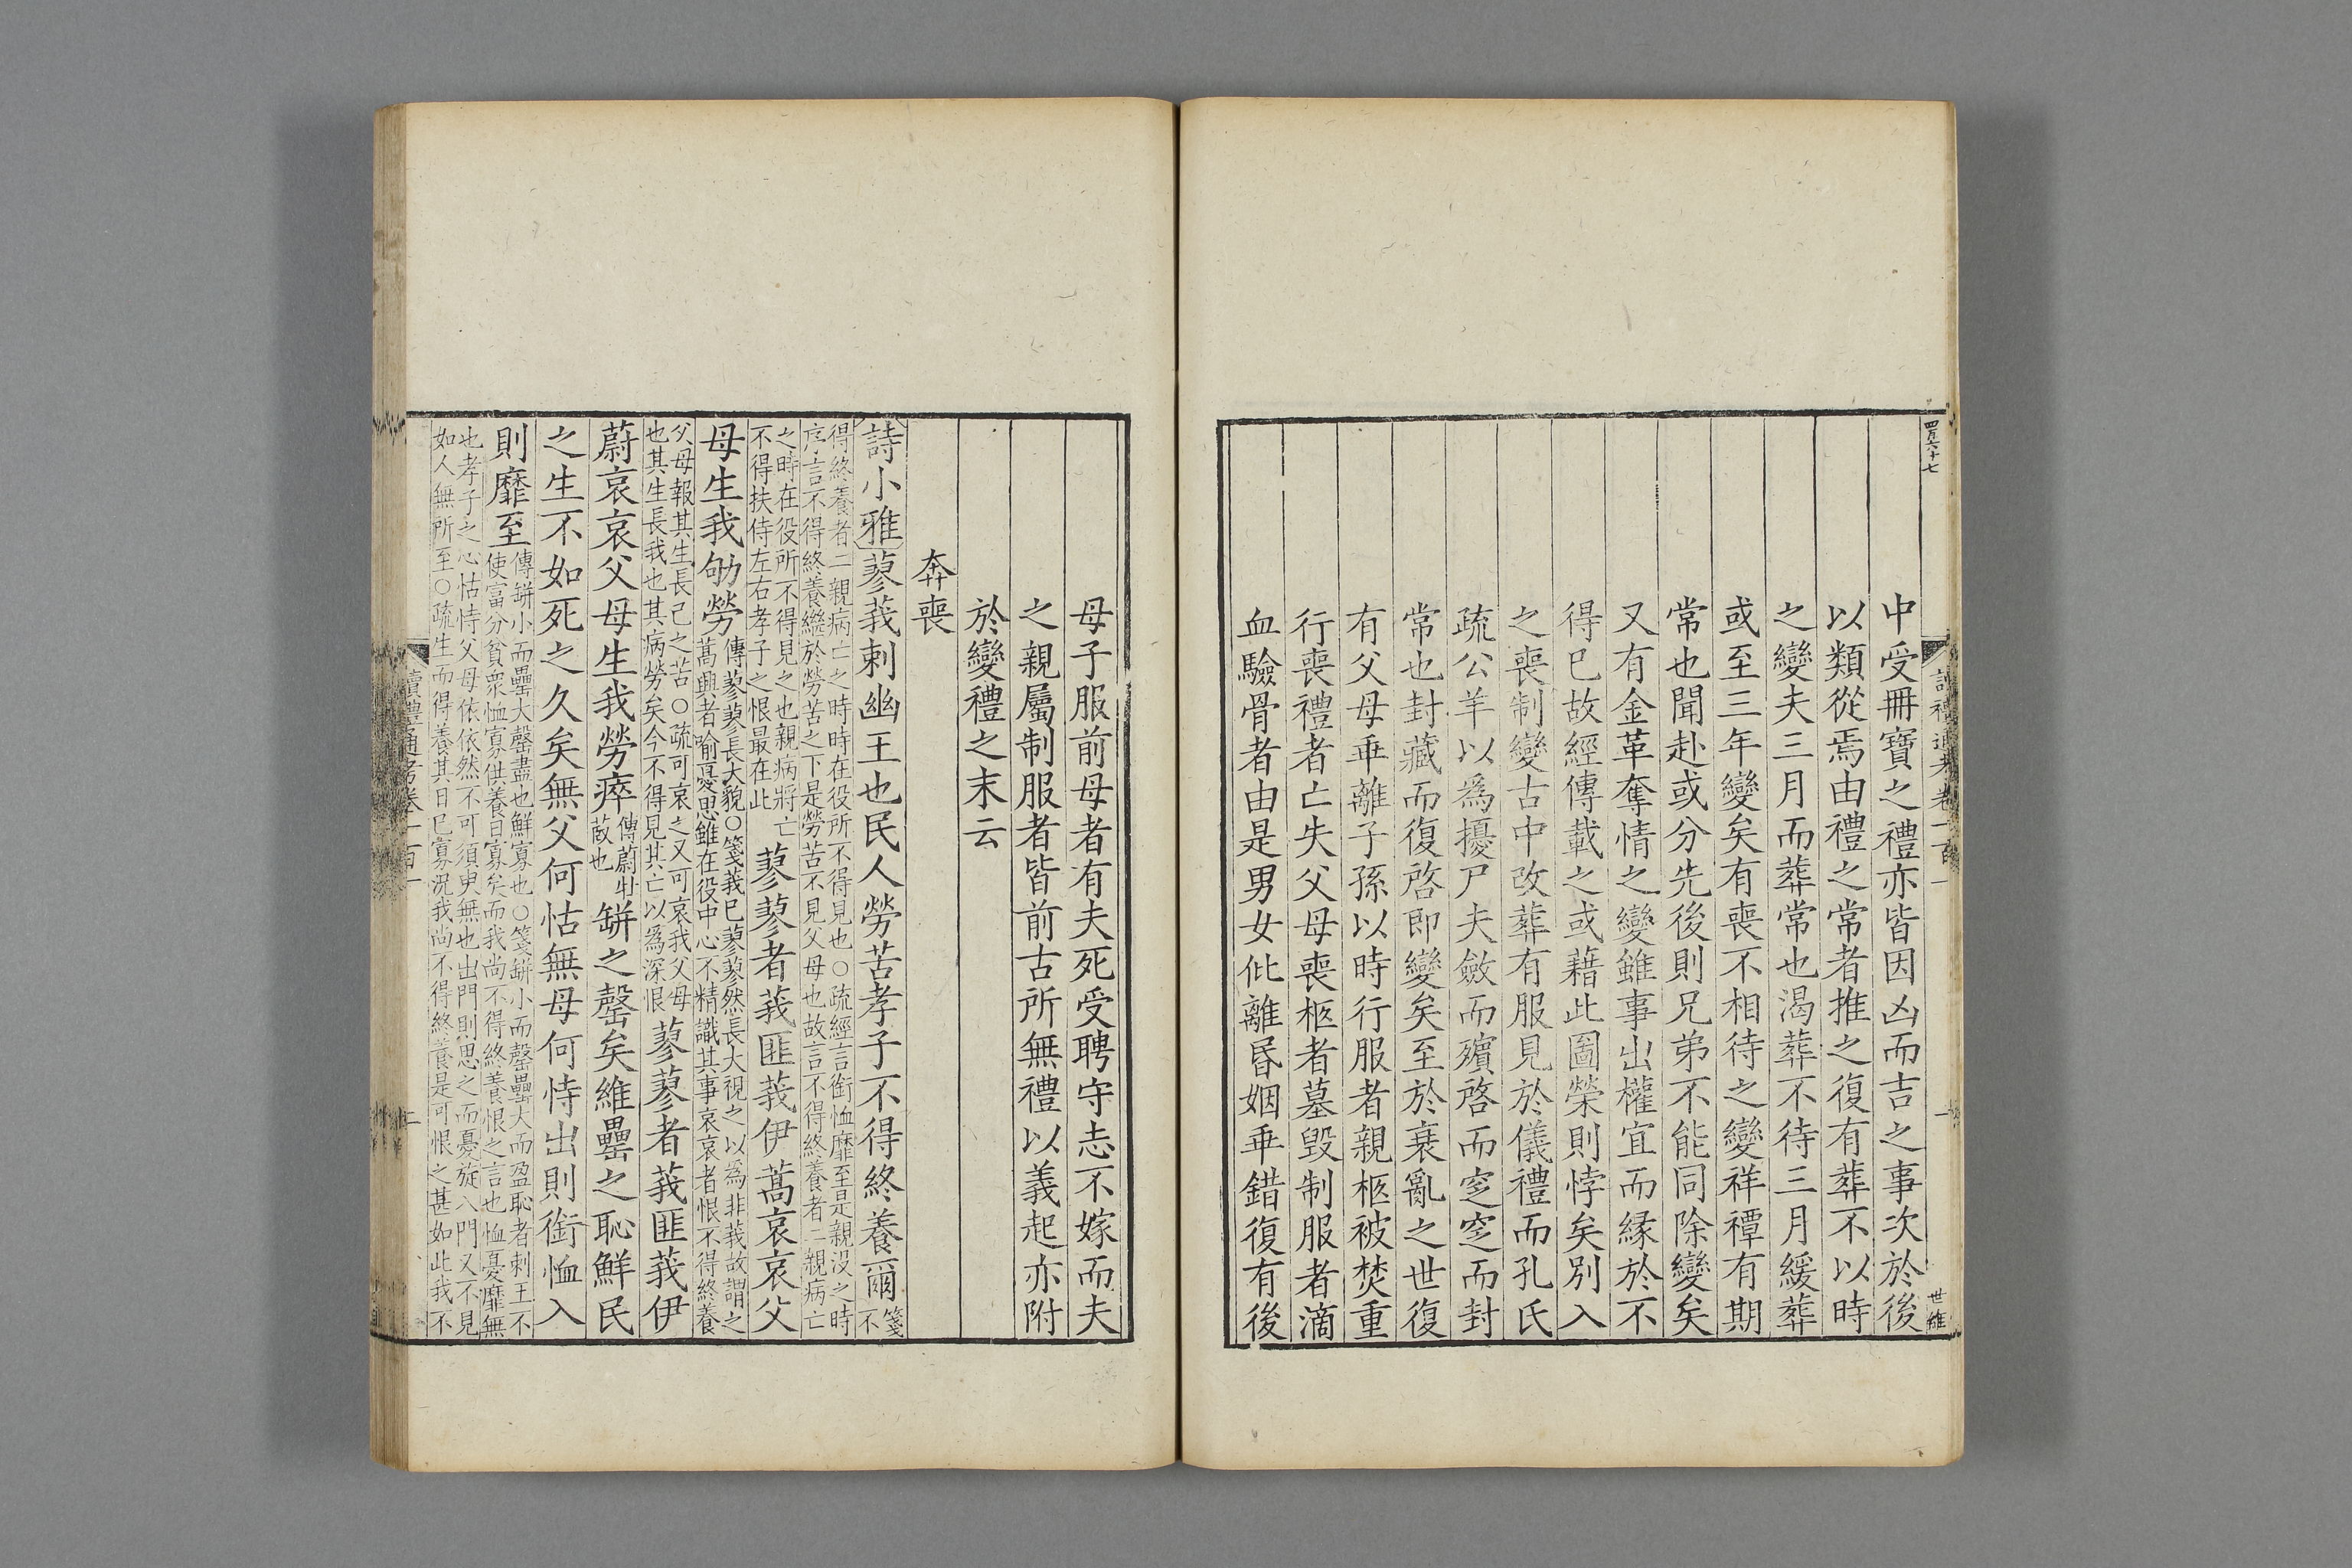 四百六十七
讀禮通考卷一百一
一
世維
中受冊寶之禮亦皆因凶而吉之事次於後
以類從焉由禮之常者推之復有葬不以時
之變夫三月而葬常也渴葬不待三月緩葬
或至三年變矣有喪不相待之變祥禫有期
常也聞赴或分先後則兄弟不能同除變矣
又有金革奪情之變雖事出權宜而緣於不
得已故經傳載之或藉此圖榮則悖矣別入
之喪制變古中改葬有服見於儀禮而孔氏
疏公羊以爲擾尸夫斂而殯啓而窆窆而封
常也封藏而復啓即變矣至於衰亂之世復
有父母乖離子孫以時行服者親柩被焚重
行喪禮者亡失父母喪柩者墓毀制服者滴
血驗骨者由是男女仳離昏姻乖錯復有後
母子服前母者有夫死受聘守志不嫁而夫
之親屬制服者皆前古所無禮以義起亦附
於變禮之末云
奔喪
詩小雅蓼莪刺幽王也民人勞苦孝子不得終養爾箋不
得終養者二親病亡之時時在役所不得見也○疏經言銜恤靡至是親没之時
序言不得終養繼於勞苦之下是勞苦不見父母也故言不得終養者二親病亡
之時在役所不得見之也親病將亡
不得扶侍左右孝子之恨最在此
蓼蓼者莪匪莪伊蒿哀哀父
母生我劬勞傳蓼蓼長大貌○箋莪已蓼蓼然長大視之以爲非莪故謂之
蒿興者喻憂思雖在役中心不精識其事哀哀者恨不得終養
父母報其生長己之苦○疏可哀之又可哀我父母
也其生長我也其病勞矣今不得見其亡以爲深恨
蓼蓼者莪匪莪伊
蔚哀哀父母生我勞瘁傳蔚牡
菣也
缾之罄矣維罍之恥鮮民
之生不如死之久矣無父何怙無母何恃出則銜恤入
則靡至傳缾小而罍大罄盡也鮮寡也○箋缾小而罄罍大而盈恥者刺王不
使富分貧衆恤寡供養日寡矣而我尚不得終養恨之言也恤憂靡無
也孝子之心怙恃父母依依然不可須臾無也出門則思之而憂旋入門又不見
如人無所至○疏生而得養其日已寡況我尚不得終養是可恨之甚如此我不
讀禮通考卷一百一
二